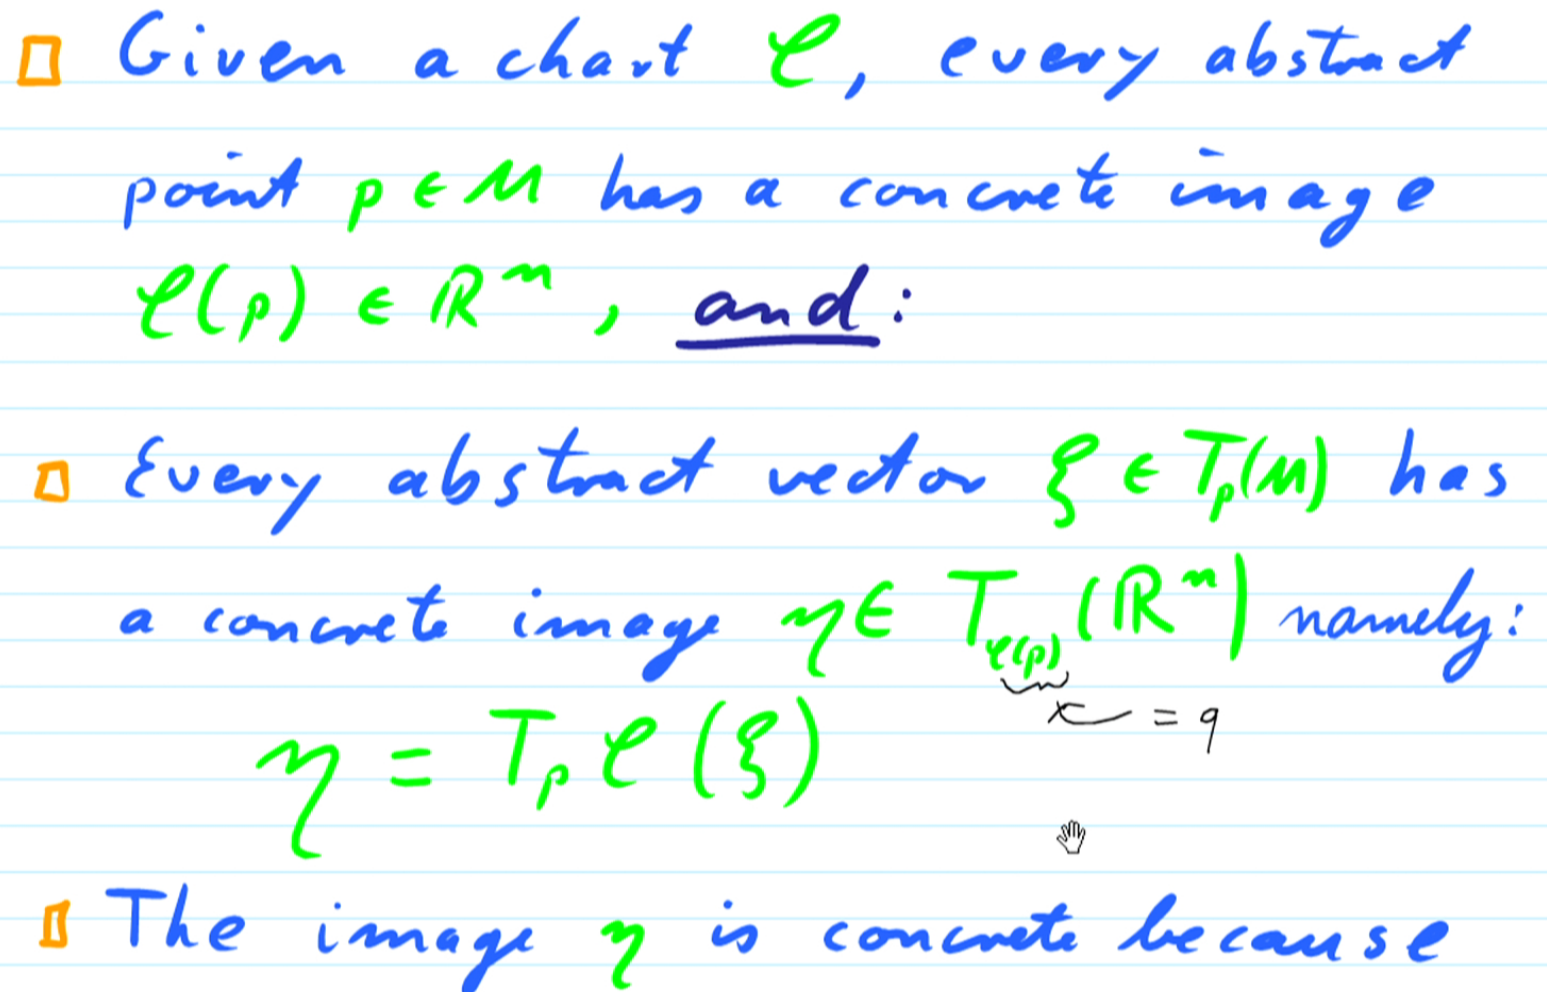 Given a chart φ, every abstract
point p ∈ M has a concrete image
φ(p) ∈ ℝⁿ, and:
Every abstract vector ξ ∈ Tₚ(M) has
a concrete image η ∈ T_φ(p) (ℝⁿ) namely:
x = q
η = Tₚ φ (ξ)
The image η is concrete because